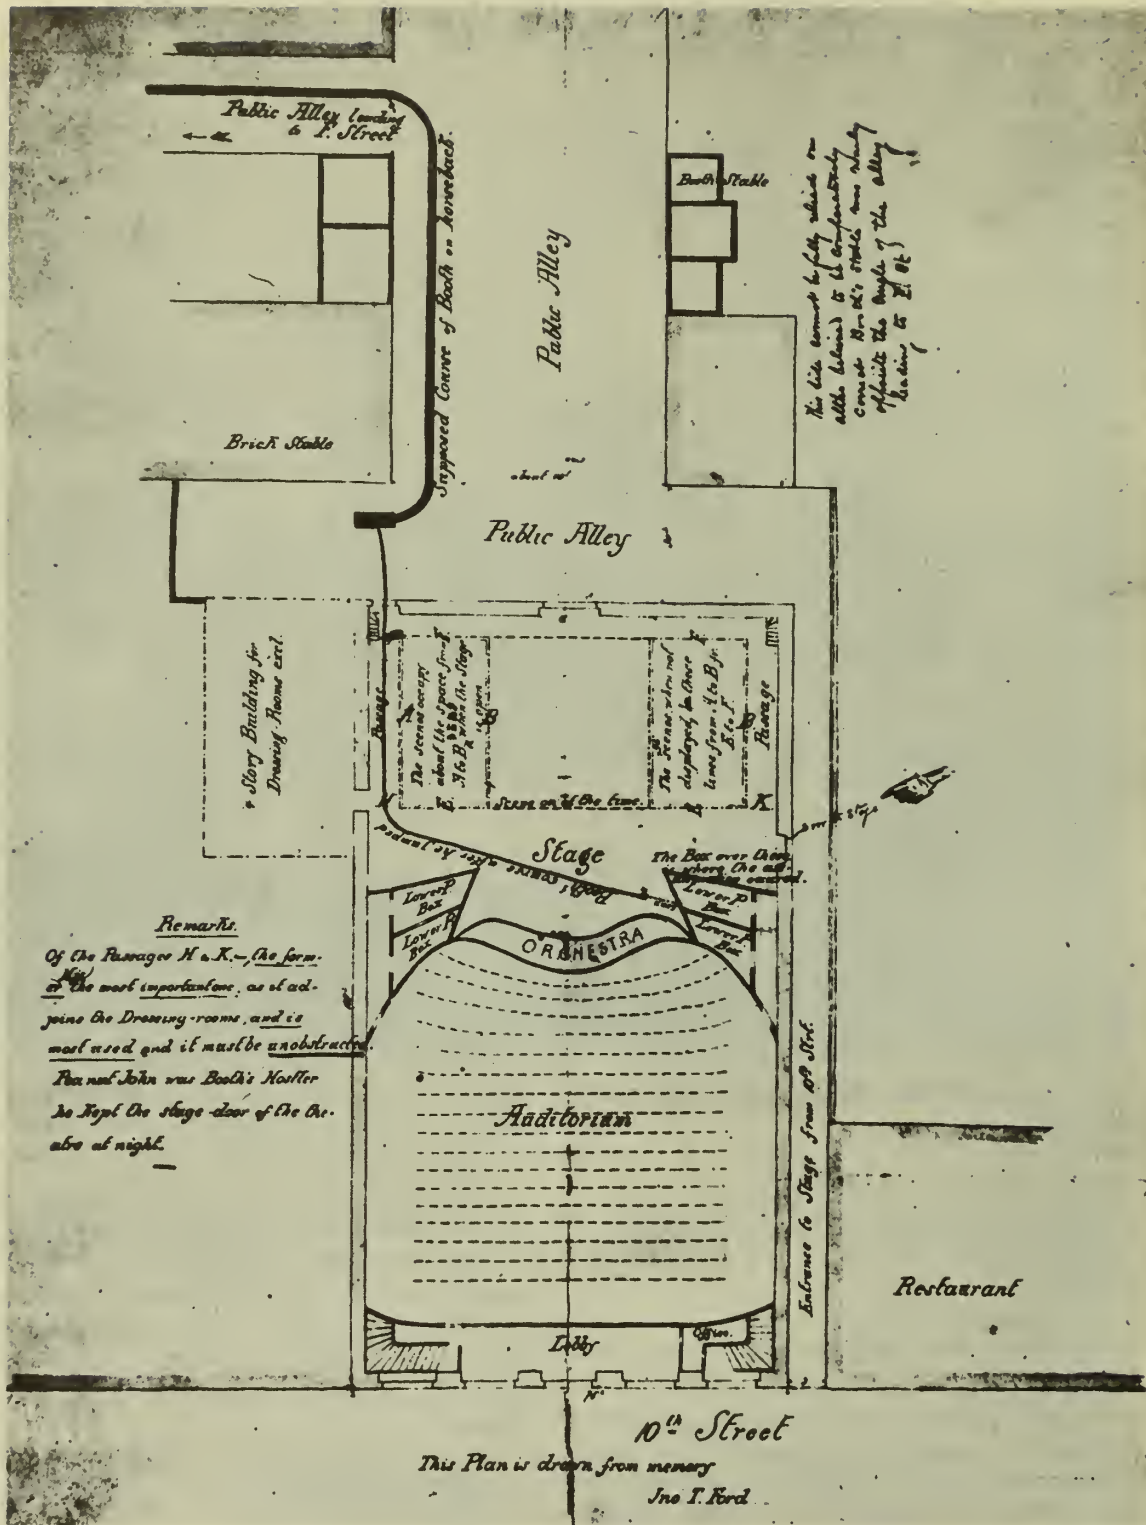 Public Alley leading
to F. Street
Supposed Course of Booth on horseback.
Public Alley
Booth Stable
This side cannot be fully relied on
altho believed to be comparatively
correct Booth's stable was nearly
opposite the angle of the alley
leading to F St)
Brick Stable
about 10'
Public Alley
4 Story Building for
Dressing-Rooms excl.
Passage
The scenes occupy
about the space from
A to B when the Stage
is open
E
F
The scenes when not
displayed, be these
lines from A to B fr.
E to F.
E
F
Passage
H
K
Scene on of the time.
Stage
Booth's course after he jumped
The Box over these
where the as-
occured.
Lower P.
Box
Lower P.
Box
Lower P.
Box
Lower P.
Box
ORCHESTRA
Remarks.
Of the Passages H & K.-, the form-
er the most important one, as it ad-
joins the Dressing-rooms, and is
most used and it must be unobstructed.
Peanut John was Booth's Hostler
he kept the stage-door of the the-
atre at night.
Auditorium
Entrance to Stage from 10th Strt.
Restaurant
Lobby
Office.
10th Street
This Plan is drawn from memory
Jno T. Ford